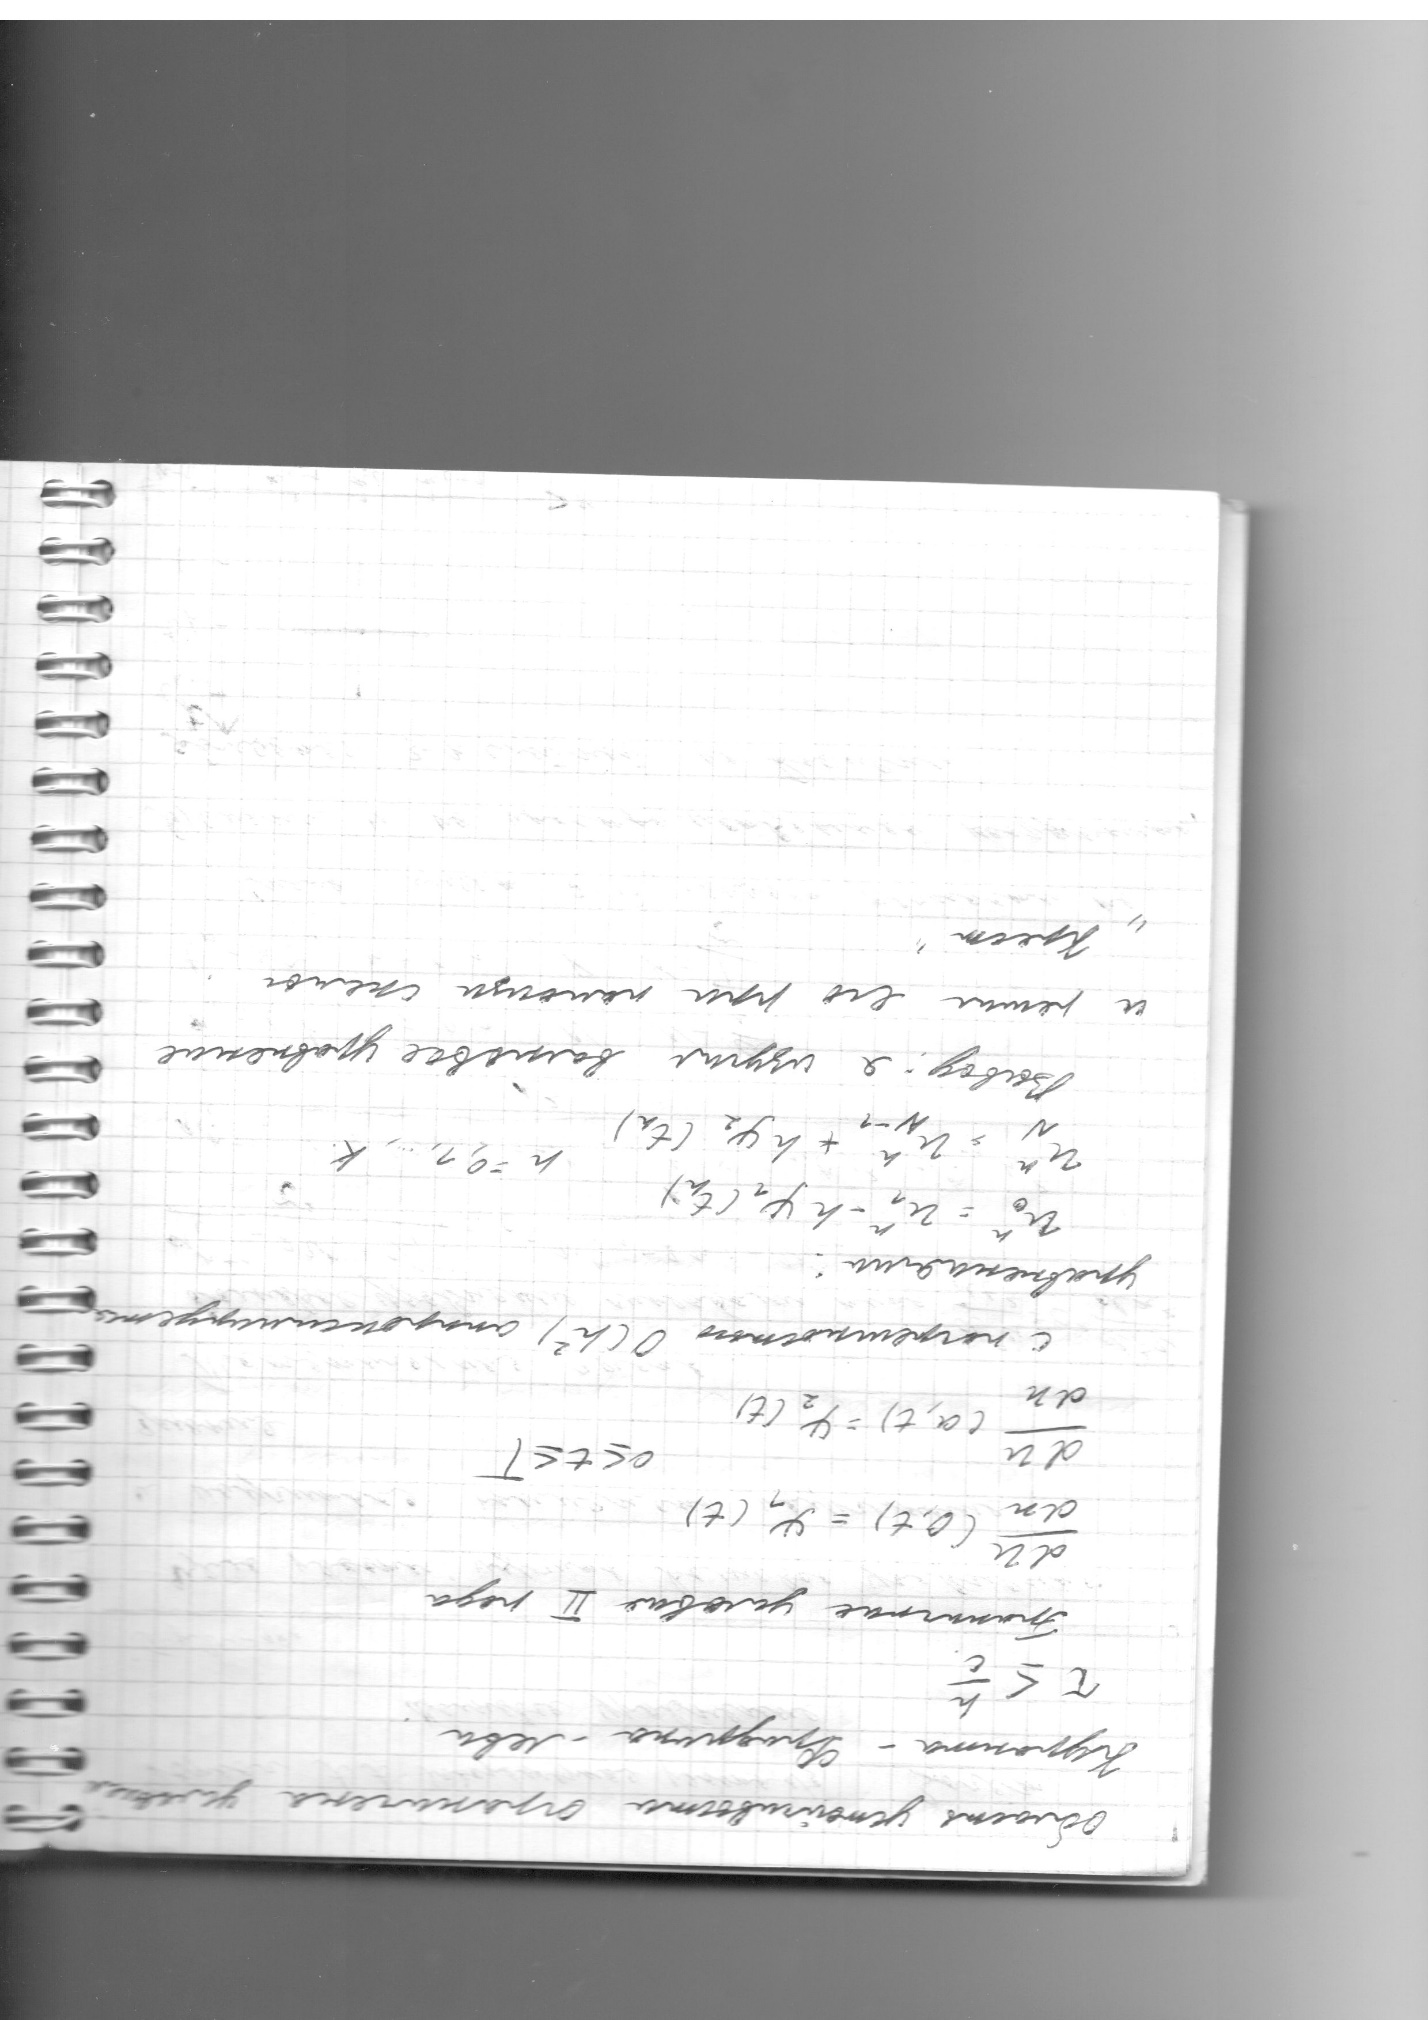 Область устойчивости ограничена условием
Куранта - Фридриха - Леви
τ ≤ h/c
Граничные условия II рода
du/dx (0,t) = ψ₁(t)
0 ≤ t ≤ T
du/dx (a,t) = ψ₂(t)
с погрешностью O(h²) аппроксимируется
уравнениями:
u₀ⁿ = u₁ⁿ - hψ₁(tₙ)
n = 0,1,..., K.
u_Nⁿ = u_{N-1}ⁿ + hψ₂(tₙ)
Вывод: я изучил волновое уравнение
и решил его при помощи схемы
„Крест“